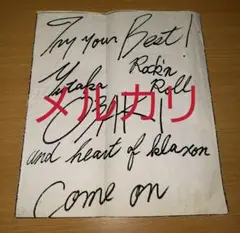 Try your Best!
Yutaka Rock'n Roll
メルカリ
OZAKI
and heart of klaxon
Come on